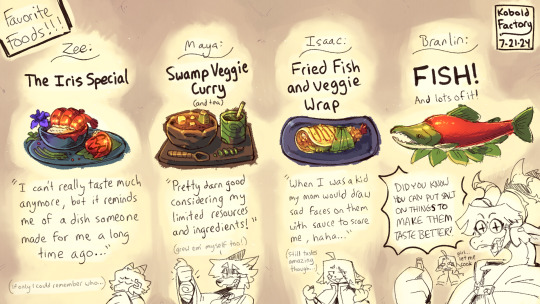 Favorite
Foods!!!
Kobold
Factory
7-21-24
Zee:
The Iris Special
"I can't really taste much
anymore, but it reminds
me of a dish someone
made for me a long
time ago..."
if only I could remember who...
Maya:
Swamp Veggie
Curry
(and tea)
"Pretty darn good
considering my
limited resources
and ingredients!"
(grew em' myself too!)
Isaac:
Fried Fish
and Veggie
Wrap
"When I was a kid
my mom would draw
sad faces on them
with sauce to scare
me, haha..."
(Still tastes
amazing
though...)
Branlin:
FISH!
And lots of it!
DID YOU KNOW
YOU CAN PUT SALT
ON THINGS TO
MAKE THEM
TASTE BETTER?
let me
cook